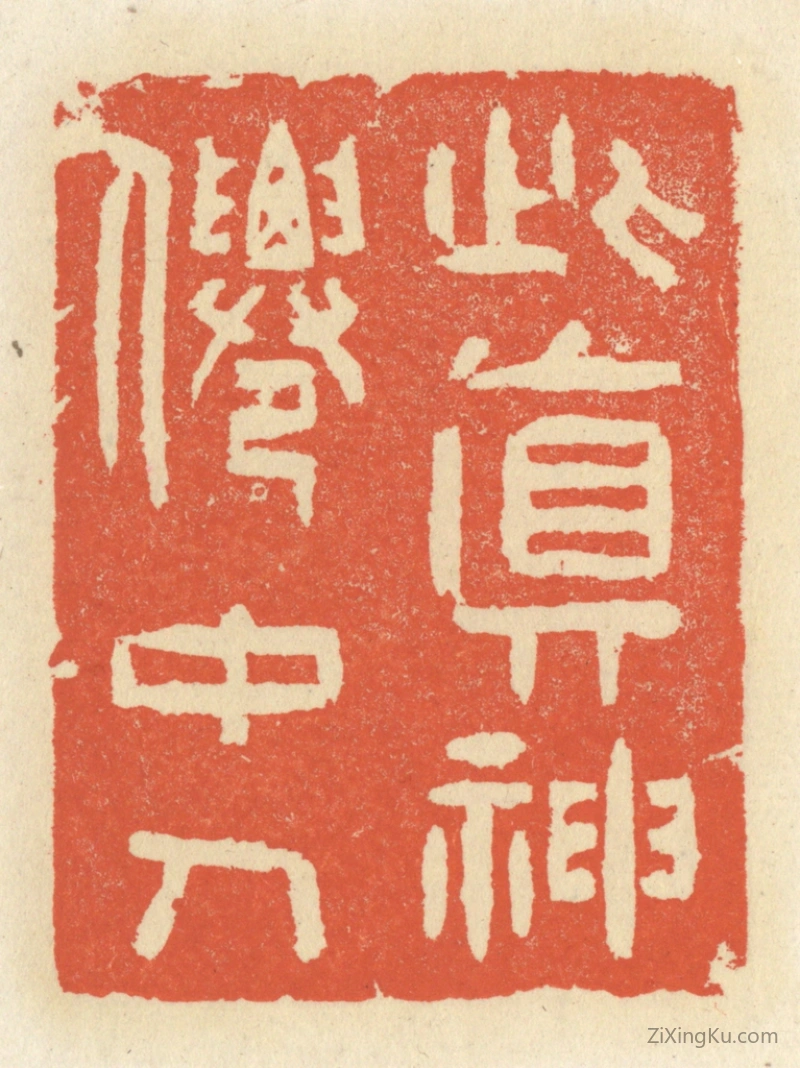 此真神
僊中人
ZiXingKu.com